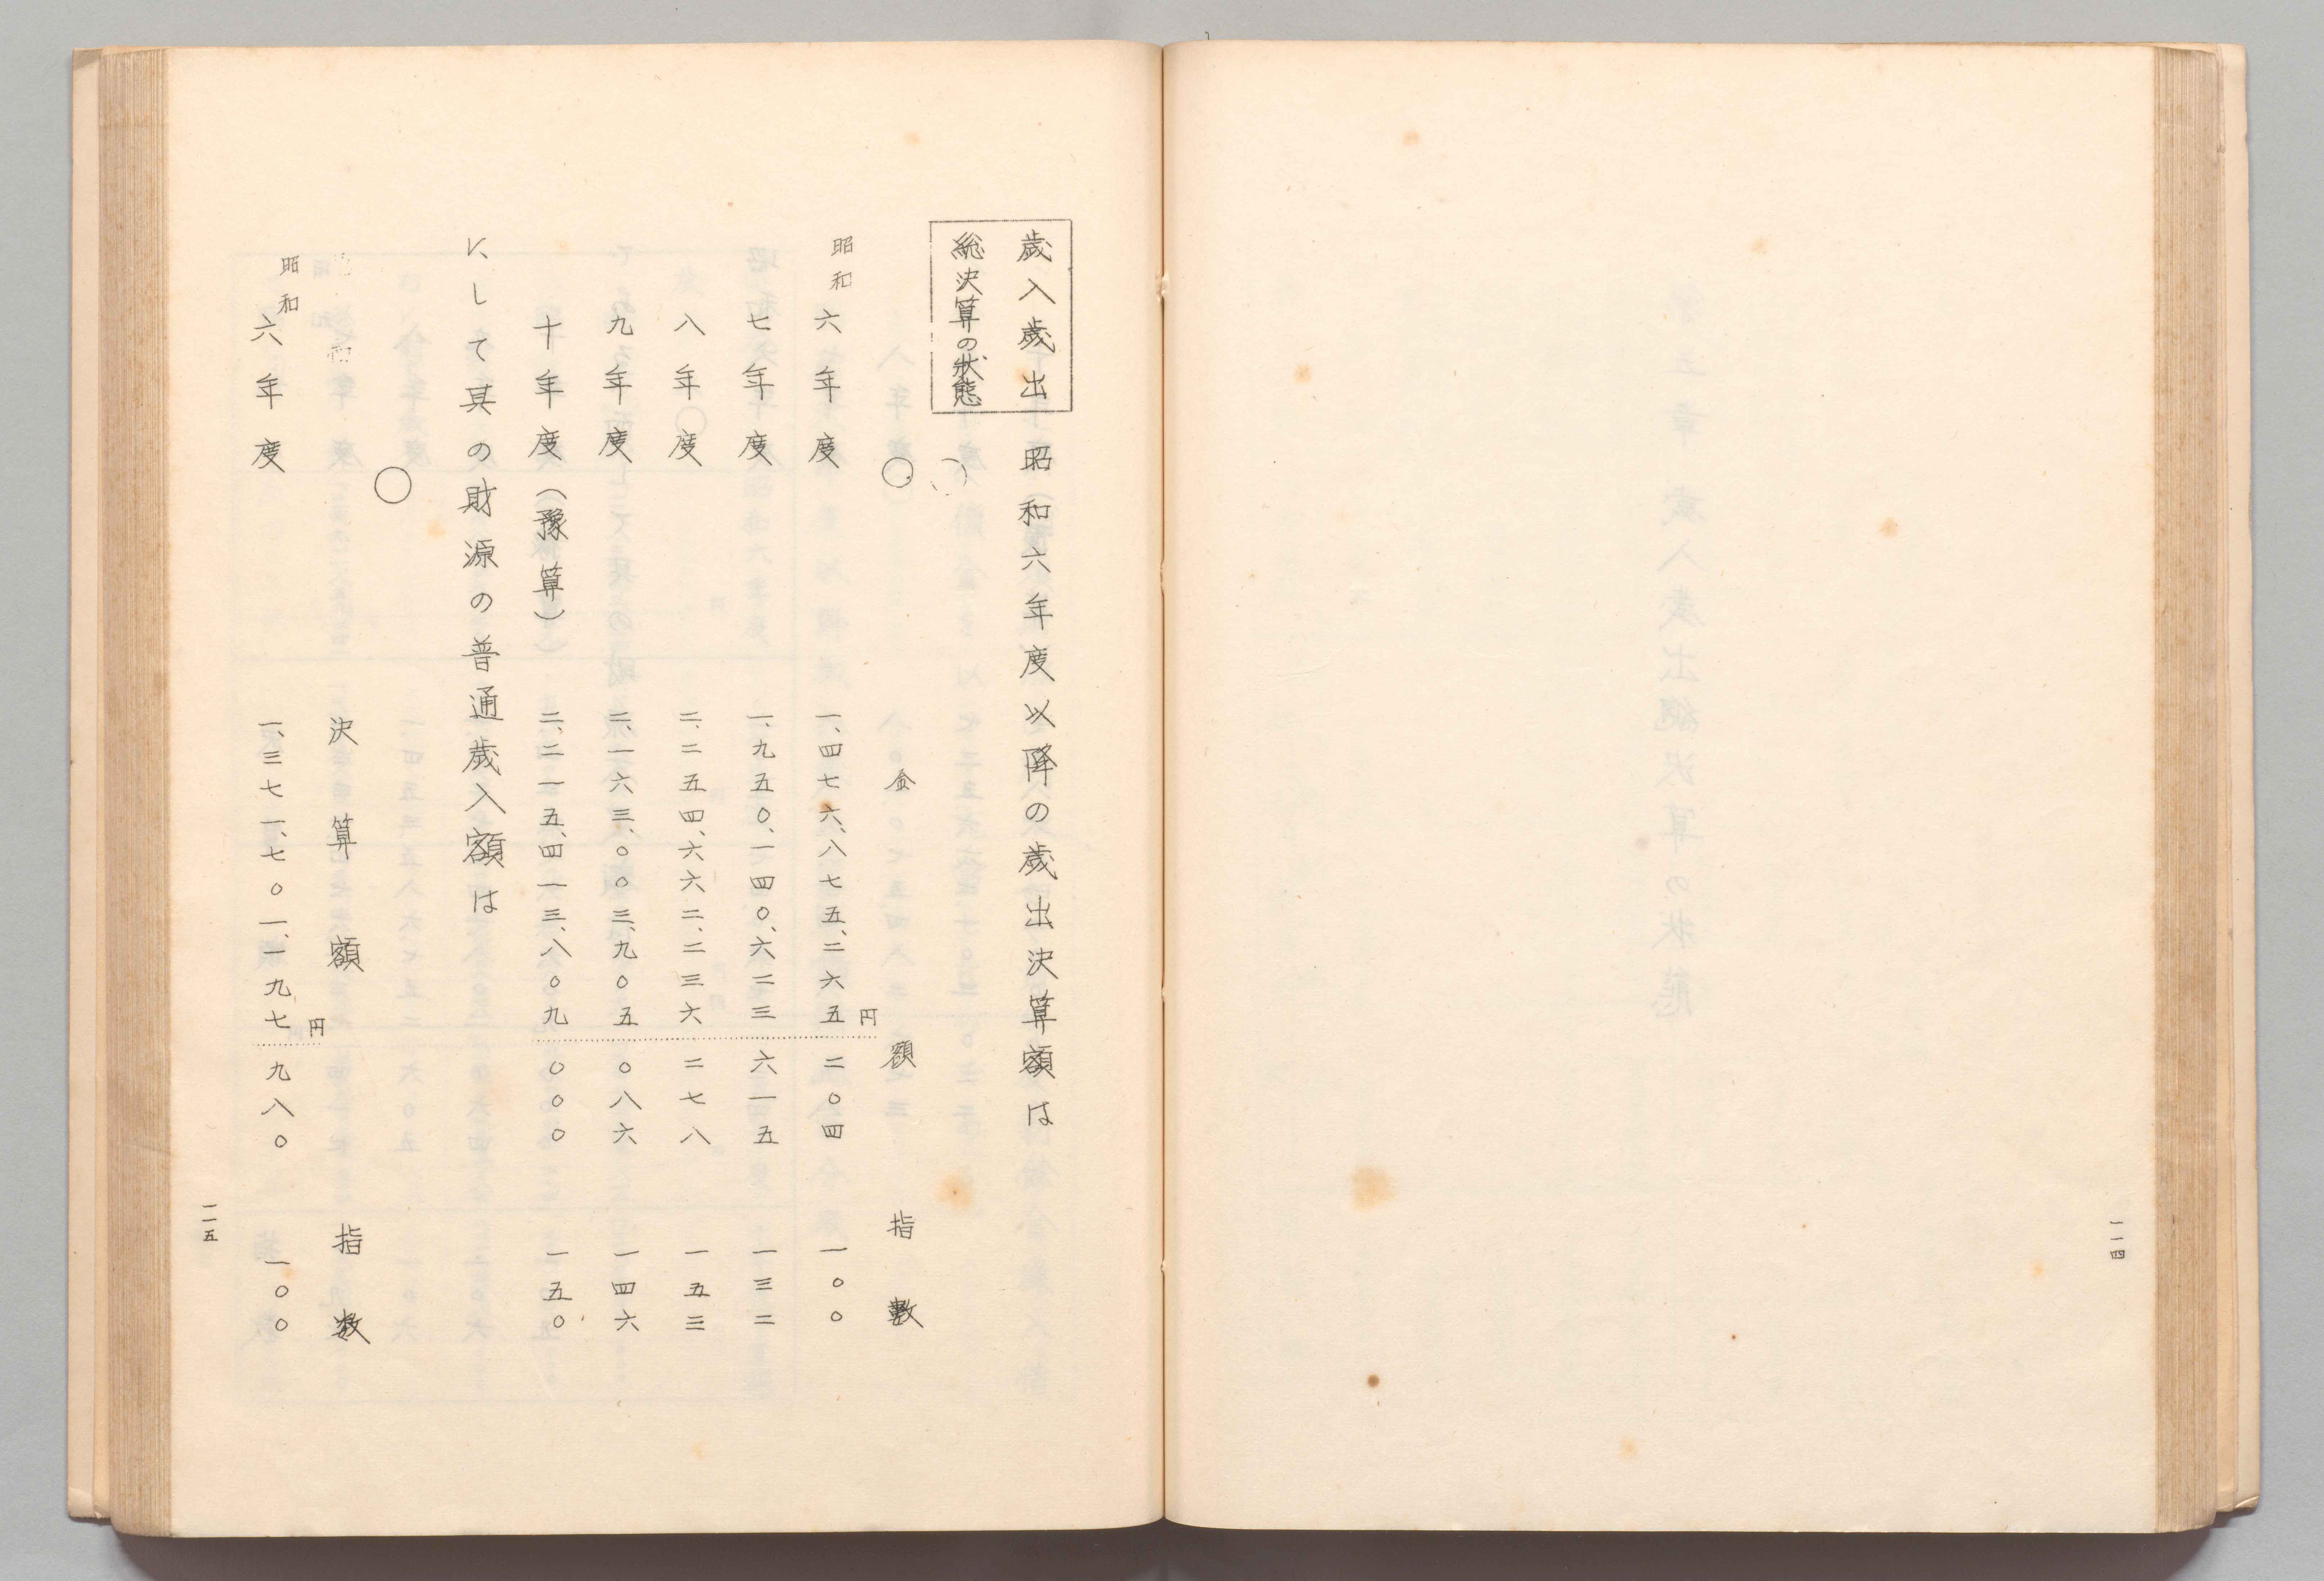 一一四
歳入歳出
総決算の状態
昭和六年度以降の歳出決算額は
○
○ 金額 指數
昭和六年度 一、四七六、八七五、二六五円二〇四 一〇〇
七年度 一、九五〇、一四〇、六二三 六一五 一三二
八年度 二、二五四、六六二、二三六 二七八 一五三
九年度 二、一六三、〇〇三、九〇五 〇八六 一四六
十年度（豫算） 二、二一五、四一三、八〇九 〇〇〇 一五〇
にして其の財源の普通歳入額は
○
決算額 指数
昭和六年度 一、三七一、七〇一、一九七円九八〇 一〇〇
一一五